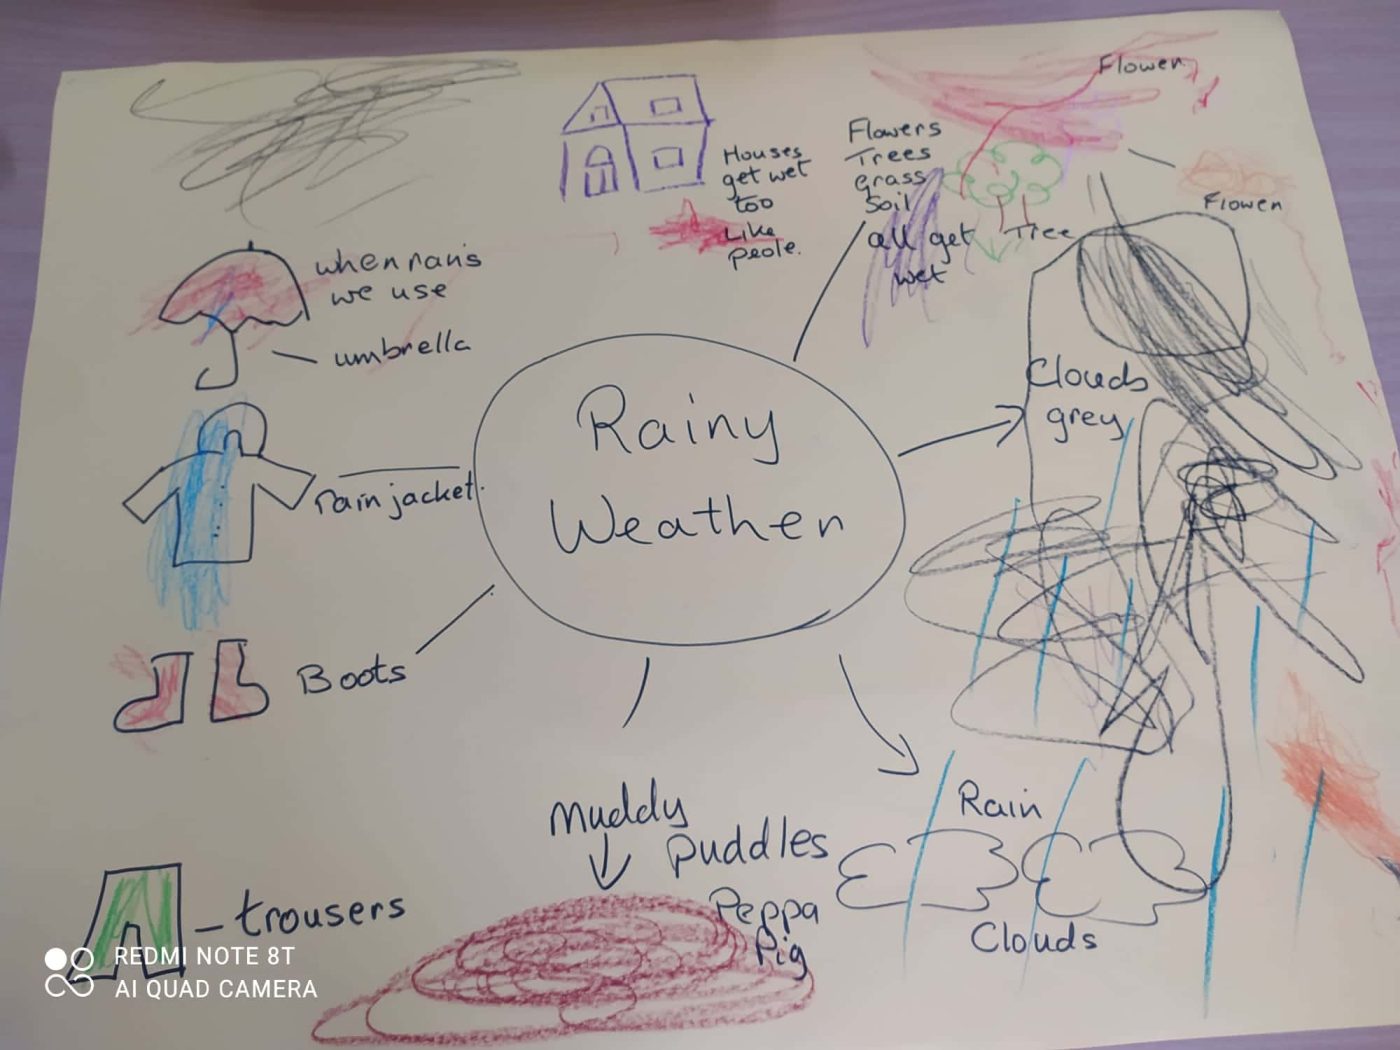 Flower
Houses
get wet
too
Like
peole.
Flowers
Trees
grass
Soil
all get
wet
Tree
Flower
when rans
we use
umbrella
Clouds
grey
Rainy
Weather
rain jacket.
Boots
Muddy
puddles
Peppa
Pig
Rain
Clouds
trousers
REDMI NOTE 8T
AI QUAD CAMERA